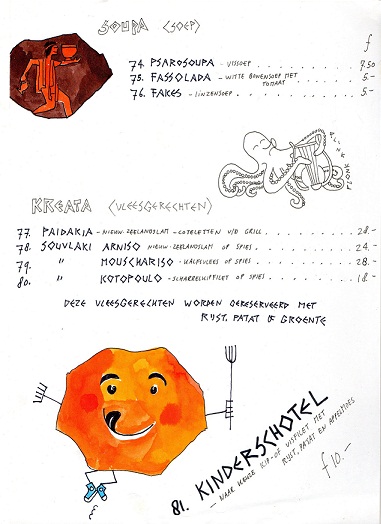 SOUPA (SOEP)
f
74. PSAROSOUPA - VISSOEP . . . . . . . . . . 9.50
75. FASSOLADA - WITTE BONENSOEP MET TOMAAT . . . . . 5.-
76. FAKES - LINZENSOEP . . . . . . . . . . 5.-
PLINK
PLONK
KREATA (VLEESGERECHTEN)
77. PAIDAKIA - NIEUW-ZEELANDSLAM - COTELETTEN V/D GRILL . . . . . 28.-
78. SOUVLAKI ARNISO NIEUW-ZEELANDSLAM OP SPIES . . . . . 24.-
79. " MOUSCHARISO - KALFSVLEES OP SPIES . . . . . 28.-
80. " KOTOPOULO - SCHARRELKIPFILET OP SPIES . . . . . 18.-
DEZE VLEESGERECHTEN WORDEN GERESERVEERD MET
RIJST, PATAT & GROENTE
81. KINDERSCHOTEL
- NAAR KEUZE KIP- OF VISFILET MET
RIJST, PATAT EN APPELMOES
f 10.-